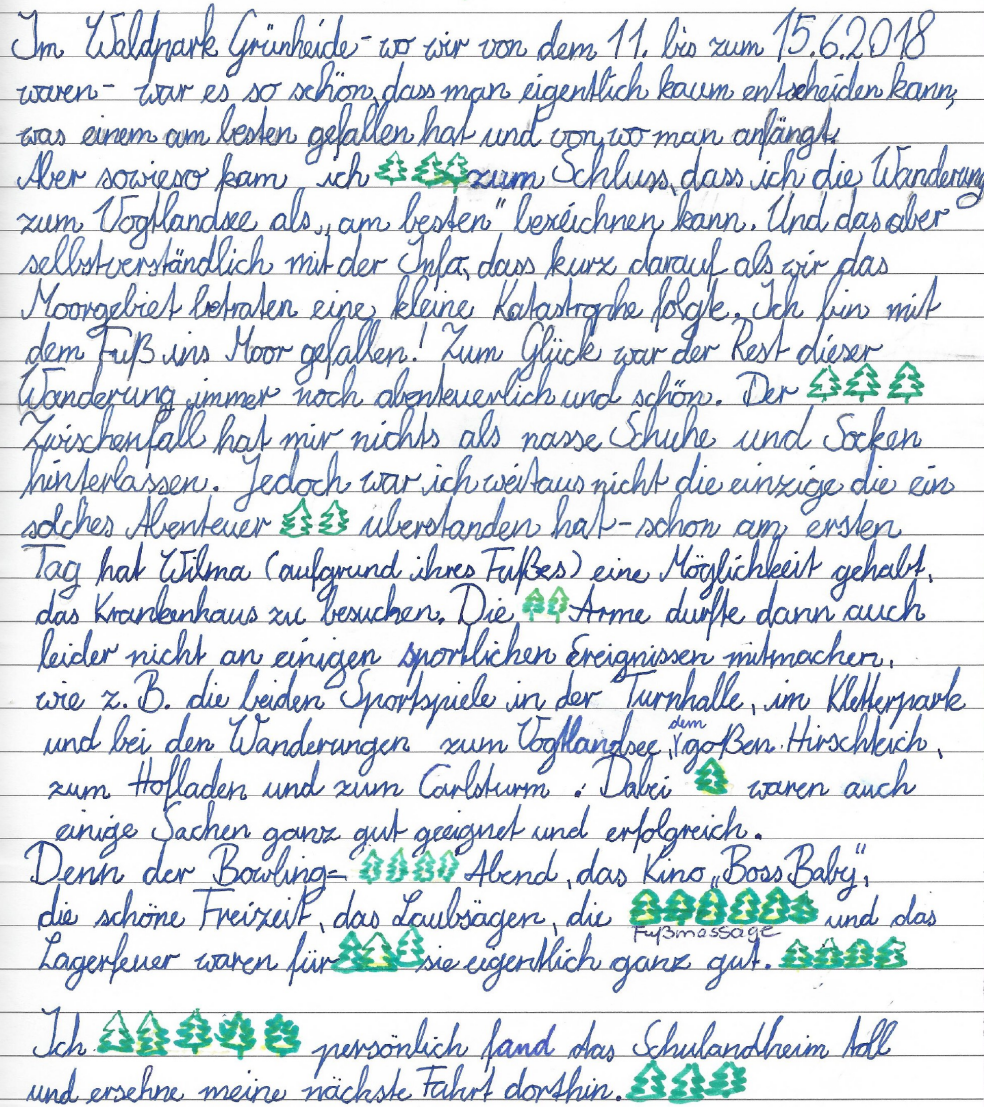 Im Waldpark Grünheide - wo wir von dem 11. bis zum 15.6.2018
waren - war es so schön, dass man eigentlich kaum entscheiden kann,
was einem am besten gefallen hat und von wo man anfängt.
Aber sowieso kam ich zum Schluss, dass ich die Wanderung
zum Vogtlandsee als „am besten" bezeichnen kann. Und das aber
selbstverständlich mit der Info, dass kurz darauf als wir das
Moorgebiet betraten eine kleine Katastrophe folgte. Ich bin mit
dem Fuß ins Moor gefallen! Zum Glück war der Rest dieser
Wanderung immer noch abenteuerlich und schön. Der
Zwischenfall hat mir nichts als nasse Schuhe und Socken
hinterlassen. Jedoch war ich weitaus nicht die einzige die ein
solches Abenteuer überstanden hat - schon am ersten
Tag hat Wilma (aufgrund ihres Fußes) eine Möglichkeit gehabt,
das Krankenhaus zu besuchen. Die Arme durfte dann auch
leider nicht an einigen sportlichen Ereignissen mitmachen,
wie z. B. die beiden Sportspiele in der Turnhalle, im Kletterpark
und bei den Wanderungen zum Vogtlandsee, dem goßen Hirschteich,
zum Hofladen und zum Carlsturm. Dabei waren auch
einige Sachen ganz gut geeignet und erfolgreich.
Denn der Bowling- Abend, das Kino „Boss Baby",
die schöne Freizeit, das Laubsägen, die und das
Fußmassage
Lagerfeuer waren für sie eigentlich ganz gut.
Ich persönlich fand das Schulandheim toll
und ersehne meine nächste Fahrt dorthin.